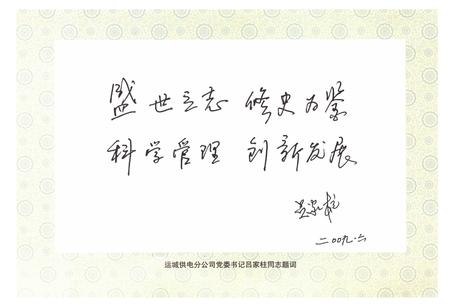 盛世立志 修史为鉴
科学管理 创新发展
吕家柱
二〇〇九.六
运城供电分公司党委书记吕家柱同志题词